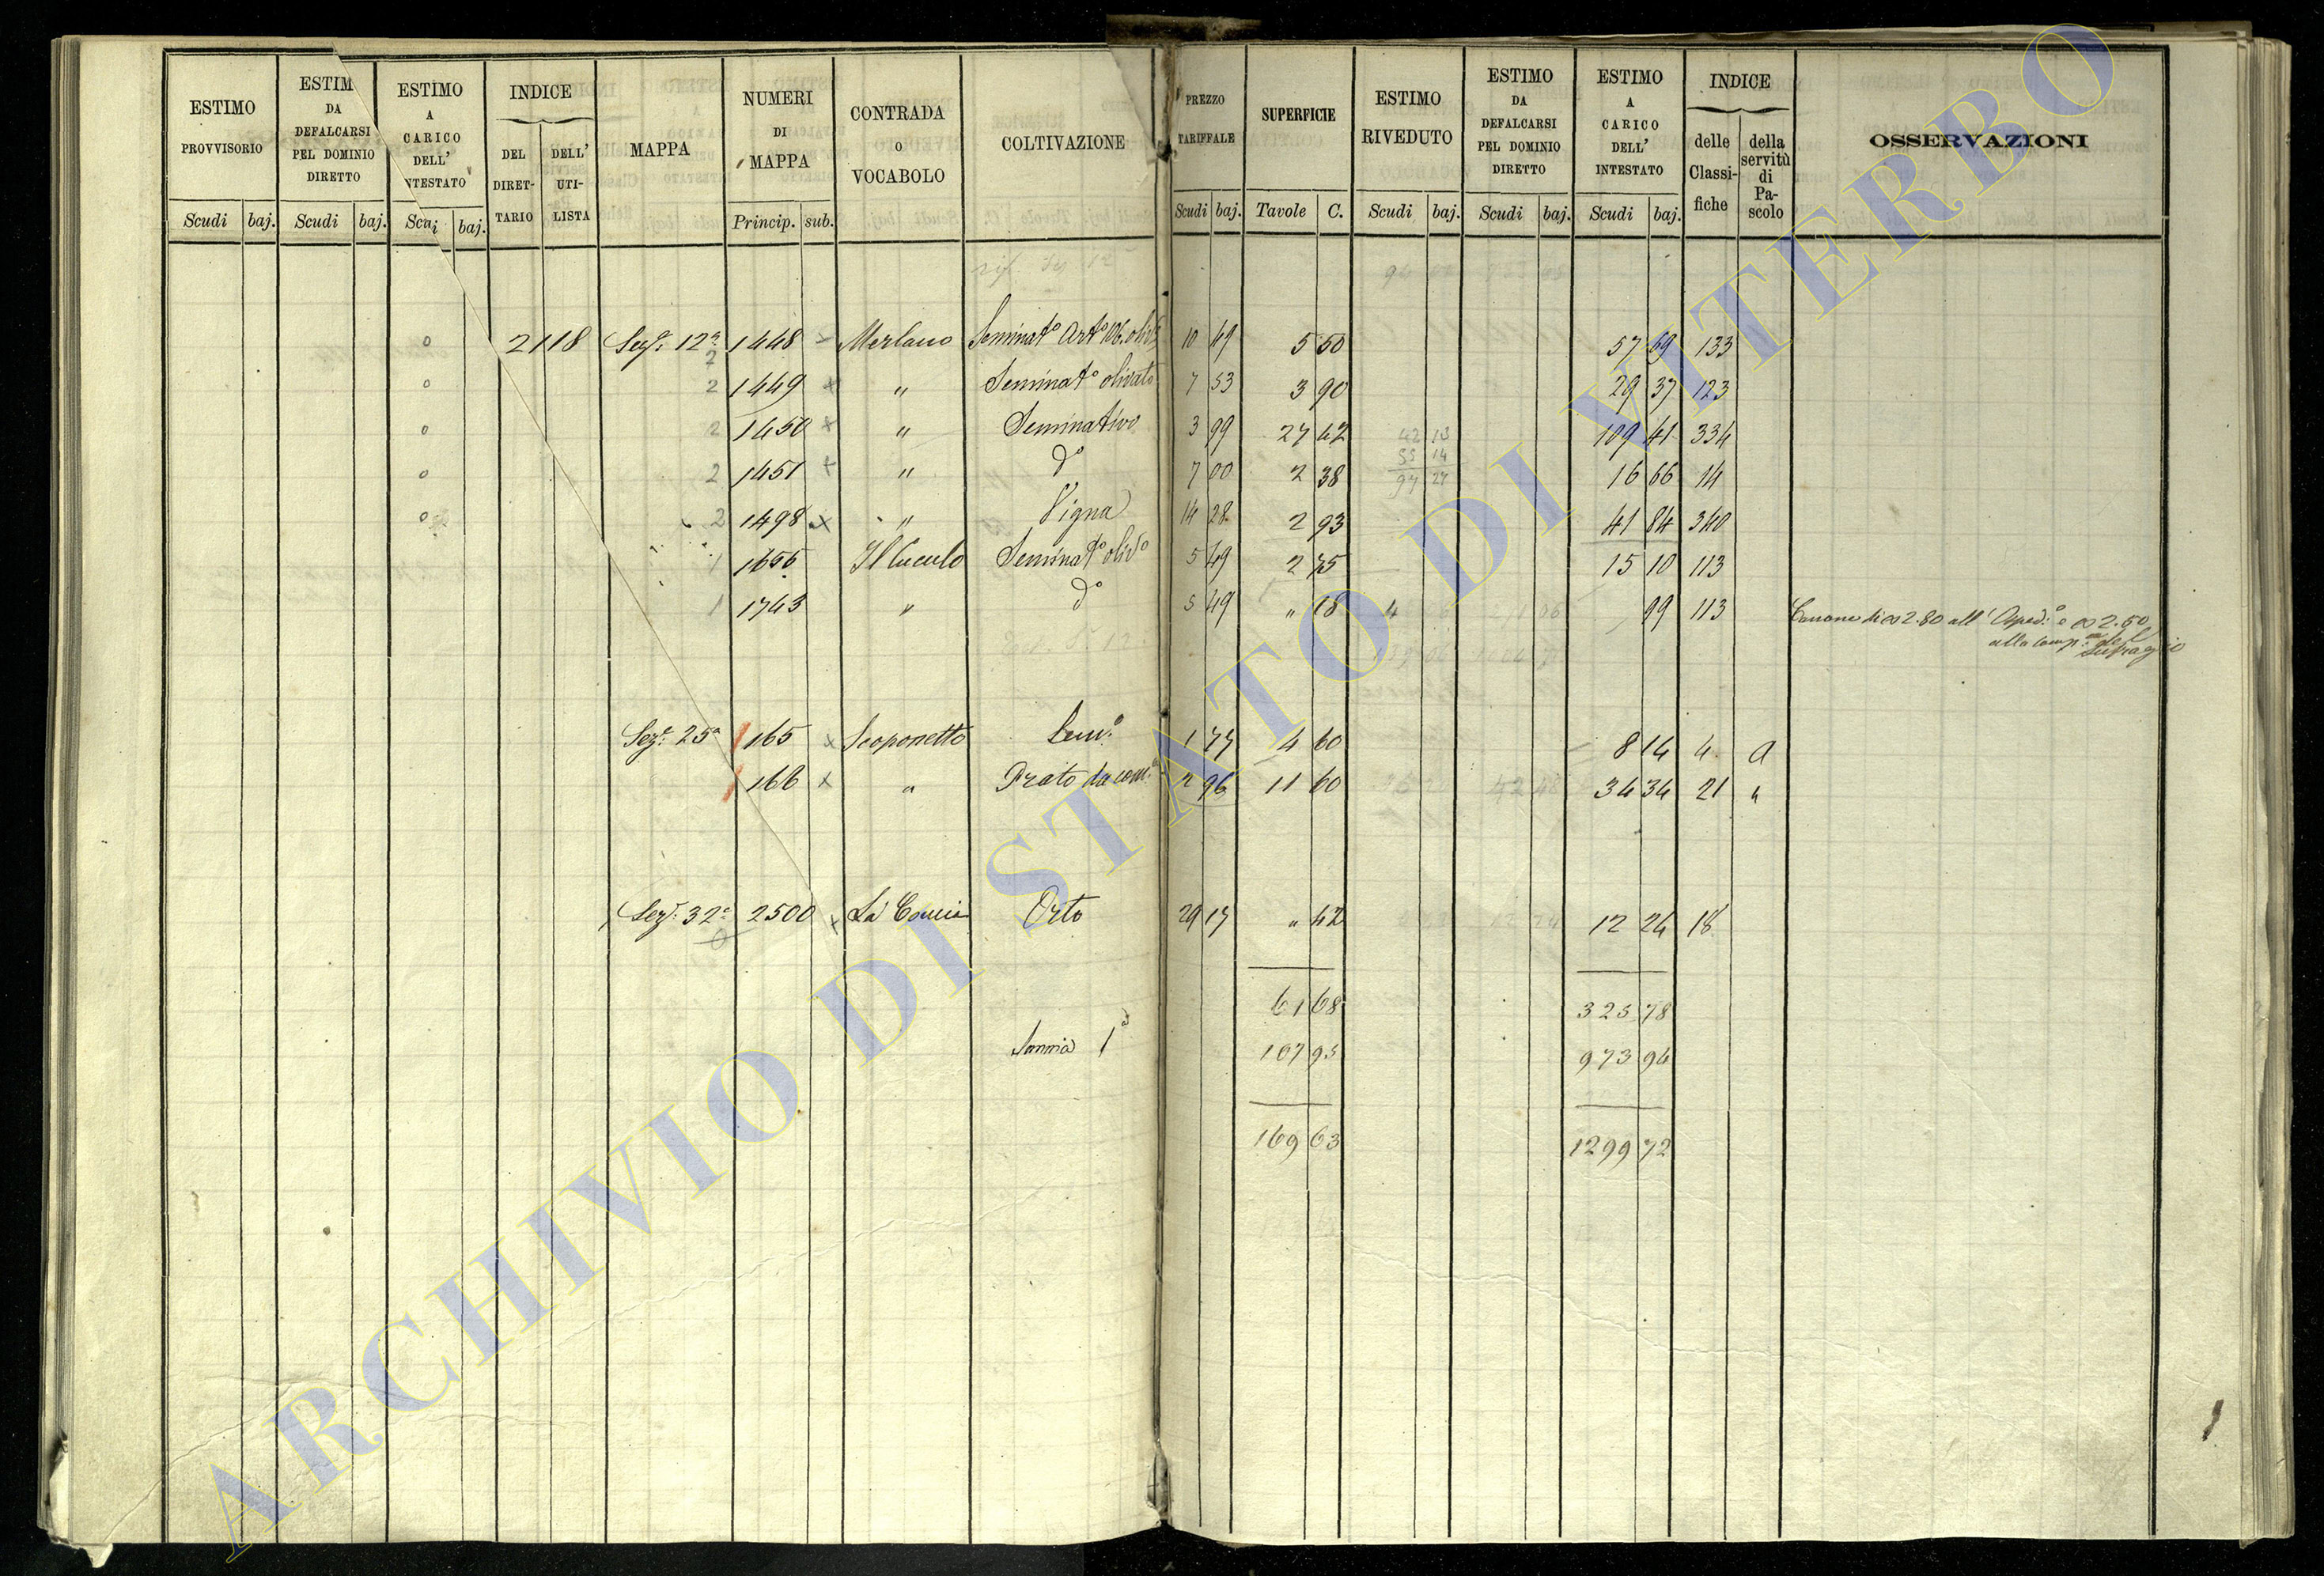 ESTIMO PROVVISORIO
ESTIM DA DEFALCARSI PEL DOMINIO DIRETTO
ESTIMO A CARICO DELL' NTESTATO
INDICE
DEL DIRET- TARIO
DELL' UTI- LISTA
MAPPA
NUMERI DI MAPPA
CONTRADA O VOCABOLO
COLTIVAZIONE
PREZZO TARIFFALE
SUPERFICIE
ESTIMO RIVEDUTO
ESTIMO DA DEFALCARSI PEL DOMINIO DIRETTO
ESTIMO A CARICO DELL' INTESTATO
INDICE
delle Classi- fiche
della servitù di Pa- scolo
OSSERVAZIONI
Scudi baj. Scudi baj. Scu i baj. Princip. sub. Scudi baj. Tavole C. Scudi baj. Scudi baj. Scudi baj.
o 2118 Seze 12a 2 1448 x Merlano Seminato Arto Vo. olivo 10 49 5 50 57 69 133
o 2 1449 x " Seminato olivato 7 53 3 90 29 37 123
o 2 1450 x " Seminativo 3 99 27 42 42 13 109 41 334
55 14
o 2 1451 x " do 7 00 2 38 97 27 16 66 14
o 2 1498 x " Vigna 14 28 2 93 41 84 340
1 1655 Il Cuculo Seminato olivo 5 49 2 75 15 10 113
1 1743 " do 5 49 " 18 99 113 Canone di 2.80 all' e 2.50
alla comp. del Suffragio
Seze 25a 165 x Scoponetto Semo 1 77 4 60 8 14 4 a
166 x " Prato da 2 96 11 60 34 34 21 "
Seze 32a 2500 x La Orto 29 17 " 42 12 24 18
61 68 325 78
Somma 1a 107 95 973 94
169 63 1299 72
ARCHIVIO DI STATO DI VITERBO